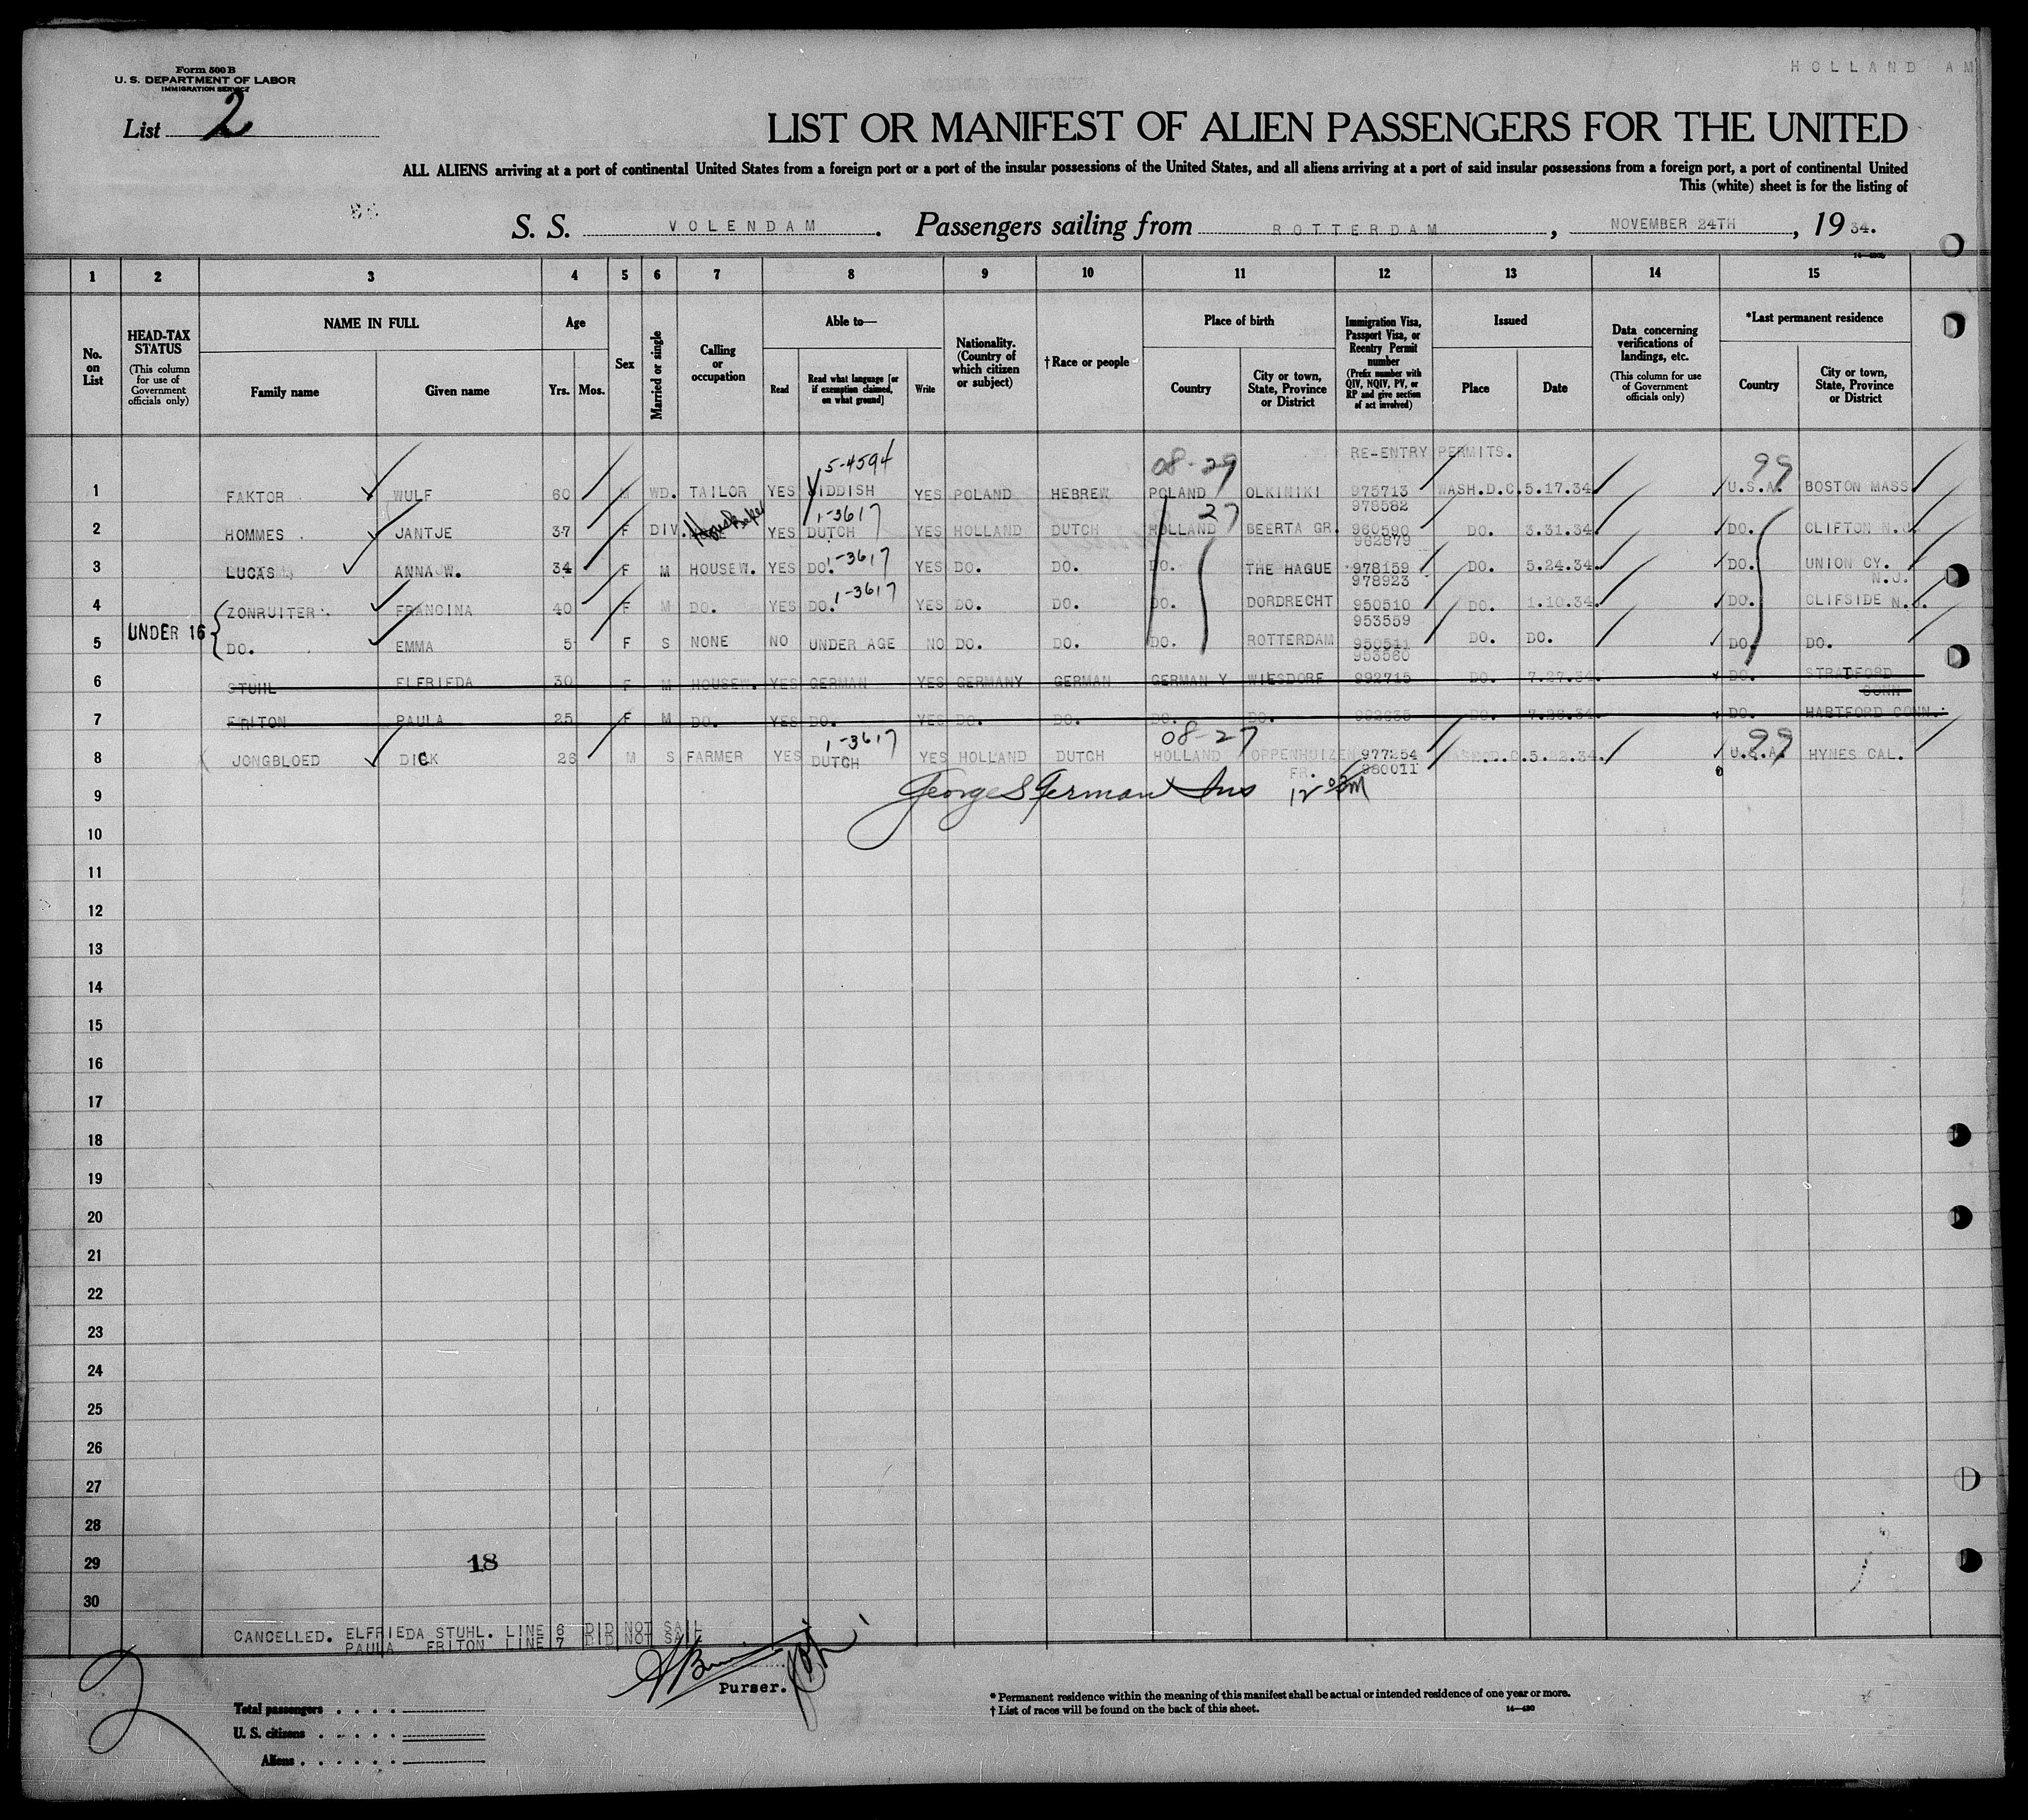 HOLLAND AM
Form 500 B
U. S. DEPARTMENT OF LABOR
IMMIGRATION SERVICE
List 2
LIST OR MANIFEST OF ALIEN PASSENGERS FOR THE UNITED
ALL ALIENS arriving at a port of continental United States from a foreign port or a port of the insular possessions of the United States, and all aliens arriving at a port of said insular possessions from a foreign port, a port of continental United
This (white) sheet is for the listing of
S. S. VOLENDAM. Passengers sailing from ROTTERDAM, NOVEMBER 24TH, 1934.
1 2 3 4 5 6 7 8 9 10 11 12 13 14 15
No. on List
HEAD-TAX STATUS (This column for use of Government officials only)
NAME IN FULL Family name Given name
Age Yrs. Mos.
Sex
Married or single
Calling or occupation
Able to— Read Read what language [or if exemption claimed, on what ground] Write
Nationality. (Country of which citizen or subject)
† Race or people
Place of birth Country City or town, State, Province or District
Immigration Visa, Passport Visa, or Reentry Permit number (Prefix number with QIV, NQIV, PV, or RP and give section of act involved)
Issued Place Date
Data concerning verifications of landings, etc. (This column for use of Government officials only)
*Last permanent residence Country City or town, State, Province or District
RE-ENTRY PERMITS.
5-4594 08-29 99
1 FAKTOR WULF 60 M WD. TAILOR YES YIDDISH YES POLAND HEBREW POLAND OLKINIKI 975713 WASH.D.C. 5.17.34. U.S.A. BOSTON MASS
978582
1-3617 27
2 HOMMES JANTJE 37 F DIV. Housekeeper YES DUTCH YES HOLLAND DUTCH HOLLAND BEERTA GR. 960590 DO. 3.31.34. DO. CLIFTON N.J.
962879
1-3617
3 LUCAS ANNA W. 34 F M HOUSEW. YES DO. YES DO. DO. DO. THE HAGUE 978159 DO. 5.24.34. DO. UNION CY. N.J.
978923
1-3617
4 ZONRUITER FRANCINA 40 F M DO. YES DO. YES DO. DO. DO. DORDRECHT 950510 DO. 1.10.34. DO. CLIFSIDE N.J.
953559
UNDER 16
5 DO. EMMA 5 F S NONE NO UNDER AGE NO DO. DO. DO. ROTTERDAM 950511 DO. DO. DO. DO.
953560
6 STUHL ELFRIEDA 30 F M HOUSEW. YES GERMAN YES GERMANY GERMAN GERMANY WIESDORF 992715 DO. 7.27.34. DO. STRATFORD CONN
7 FRITON PAULA 25 F M DO. YES DO. YES DO. DO. DO. DO. DO. 7.26.34. DO. HARTFORD CONN.
1-3617 08-27 99
8 JONGBLOED DICK 26 M S FARMER YES DUTCH YES HOLLAND DUTCH HOLLAND OPPENHUIZEN FR. 977254 WASH.D.C. 5.22.34. U.S.A. HYNES CAL.
980011
9 George S German Ins
10
11
12
13
14
15
16
17
18
19
20
21
22
23
24
25
26
27
28
29 18
30
CANCELLED. ELFRIEDA STUHL. LINE 6 DID NOT SAIL
PAULA FRITON LINE 7 DID NOT SAIL
2
Purser.
Total passengers
U. S. citizens
Aliens
* Permanent residence within the meaning of this manifest shall be actual or intended residence of one year or more.
† List of races will be found on the back of this sheet. 14—430